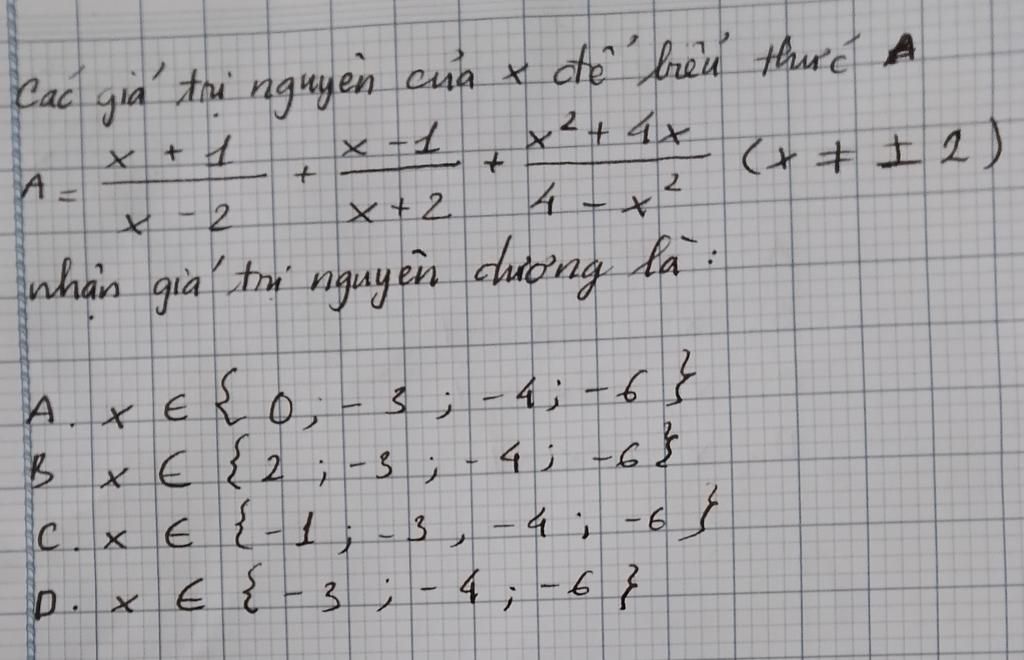 Các giá trị nguyên của x để biểu thức A
A = \frac{x + 1}{x - 2} + \frac{x - 1}{x + 2} + \frac{x^2 + 4x}{4 - x^2} (x ≠ ± 2)
nhận giá trị nguyên dương là:
A. x ∈ { 0; -3; -4; -6 }
B x ∈ { 2; -3; -4; -6 }
C. x ∈ { -1; -3, -4; -6 }
D. x ∈ { -3; -4; -6 }